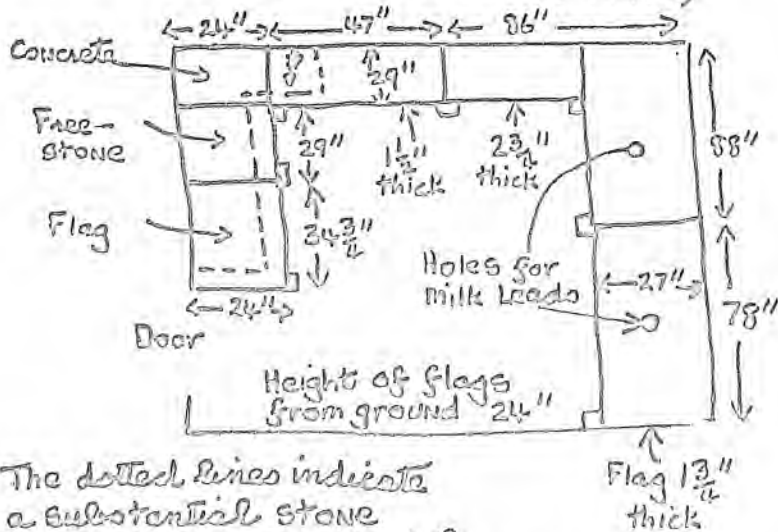 24" 47" 86"
Concrete
29"
Free-
stone
29"
1½"
thick
2¾"
thick
88"
Flag
34¾"
Holes for
milk leads
27"
78"
24"
Door
Height of flags
from ground 24"
The dotted lines indicate
a substantial stone
Flag 1¾"
thick